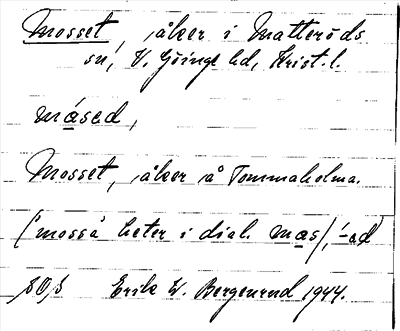 Mosset, åker i Matteröds
sn, V. Göinge hd, Krist. l.
måsed,
Mosset, åker å Tommaholma.
("mosså heter i dial. mas/, -ad
Erik W. Bergenrud 1944.